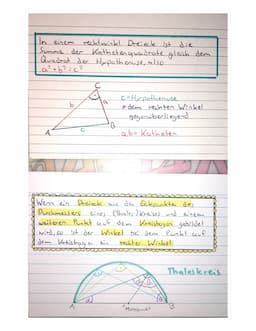 In einem rechtwinkl. Dreieck ist die
Summe der Kathetenquadrate gleich dem
Quadrat der Hypothenuse, also
a²+b²=c²
C
b
a
A
c
B
c=Hypothenuse
dem rechten Winkel
gegenüberliegend
a,b= Katheten
Wenn ein Dreieck aus den Eckpunkten des
Durchmessers eines (Thales-)kreises und einem
weiteren Punkt auf dem Kreisbogen gebildet
wird, so ist der Winkel bei dem Punkt auf
dem Kreisbogen ein rechter Winkel.
Thaleskreis
A
Mittelpunkt
B